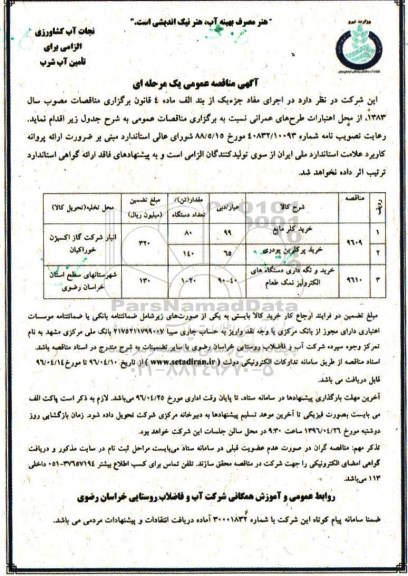 "هنر مصرف بهینه آب، هنر نیک اندیشی است."
وزارت نیرو
نجات آب کشاورزی
الزامی برای
تأمین آب شرب
آگهی مناقصه عمومی یک مرحله ای
این شرکت در نظر دارد در اجرای مفاد جزءیک از بند الف ماده ۴ قانون برگزاری مناقصات مصوب سال
۱۳۸۳، از محل اعتبارات طرح‌های عمرانی نسبت به برگزاری مناقصات عمومی به شرح جدول زیر اقدام نماید.
رعایت تصویب نامه شماره ۴۰۸۳۲/۱۰۰۹۳ مورخ ۸۸/۵/۱۵ شورای عالی استاندارد مبنی بر ضرورت ارائه پروانه
کاربرد علامت استاندارد ملی ایران از سوی تولیدکنندگان الزامی است و به پیشنهادهای فاقد ارائه گواهی استاندارد
ترتیب اثر داده نخواهد شد.
ردیف مناقصه شرح کالا عیار/دبی مقدار(تن)/تعداد دستگاه مبلغ تضمین (میلیون ریال) محل تخلیه(تحویل کالا)
۱ ۹۶۰۹ خرید کلر مایع ۹۹ ۸۰ ۳۲۰ انبار شرکت گاز اکسیژن خوراکیان
۲ خرید پرکلرین پودری ۶۵ ۱۴۰
۳ ۹۶۱۰ خرید و نگه داری دستگاه های الکترولیز نمک طعام ۹۰-۴۰ ۱۰۲۰ ۱۳۰ شهرستانهای سطح استان خراسان رضوی
مبلغ تضمین در فرایند ارجاع کار خرید کالا بایستی به یکی از صورت‌های زیرشامل ضمانتنامه بانکی یا ضمانتنامه موسسات
اعتباری دارای مجوز از بانک مرکزی یا وجه نقد واریز به حساب جاری سیبا ۲۱۷۵۲۱۱۷۹۹۰۰۷ بانک ملی مرکزی مشهد به نام
تمرکز وجوه سپرده شرکت آب و فاضلاب روستایی خراسان رضوی یا سایر تضمینات به شرح مندرج در اسناد مناقصه باشد.
اسناد مناقصه از طریق سامانه تدارکات الکترونیکی دولت ( www.setadiran.ir ) از تاریخ ۹۶/۰۴/۱۰ تا مورخ ۹۶/۰۴/۱۴
قابل دریافت می باشد.
آخرین مهلت بارگذاری پیشنهادها در سامانه ستاد، تا پایان وقت اداری مورخ ۹۶/۰۴/۲۵ می‌باشد. لازم به ذکر است پاکت الف
می بایست بصورت فیزیکی تا آخرین موعد تسلیم پیشنهادها به دبیرخانه مرکزی شرکت تحویل داده شود. زمان بازگشایی روز
دوشنبه مورخ ۱۳۹۶/۰۴/۲۶ ساعت ۹:۳۰ در محل سالن جلسات این شرکت خواهد بود.
تذکر مهم: مناقصه گران در صورت عدم عضویت قبلی در سامانه ستاد می‌بایست مراحل ثبت نام در سایت مذکور و دریافت
گواهی امضای الکترونیکی را جهت شرکت در مناقصه محقق سازند. تلفن تماس برای کسب اطلاع بیشتر ۳۷۶۵۷۱۹۴-۰۵۱ داخلی
۱۱۳ می‌باشد.
روابط عمومی و آموزش همگانی شرکت آب و فاضلاب روستایی خراسان رضوی
ضمنا سامانه پیام کوتاه این شرکت با شماره ۳۰۰۰۱۸۳۲ آماده دریافت انتقادات و پیشنهادات مردمی می باشد.
ParsNamadData
۰۲۱-۸۸۳۴۹۶۷۰-۵